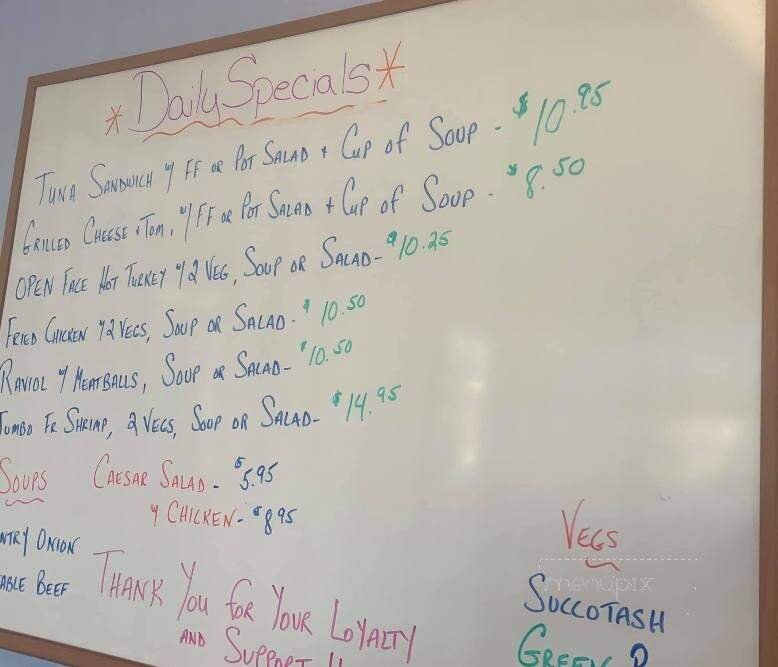 *Daily Specials*
TUNA SANDWICH w/ FF OR POT SALAD + CUP OF SOUP - $10.95
GRILLED CHEESE + TOM, w/ FF OR POT SALAD + CUP OF SOUP - $8.50
OPEN FACE HOT TURKEY w/ 2 VEG, SOUP OR SALAD - $10.25
FRIED CHICKEN w/ 2 VEGS, SOUP OR SALAD - $10.50
RAVIOL w/ MEATBALLS, SOUP OR SALAD - $10.50
JUMBO FR SHRIMP, 2 VEGS, SOUP OR SALAD - $14.95
SOUPS CAESAR SALAD - $5.95
w/ CHICKEN - $8.95
NTRY ONION
ABLE BEEF
THANK YOU FOR YOUR LOYALTY
AND SUPPORT !!
VEGS
menupix
SUCCOTASH
GREEN